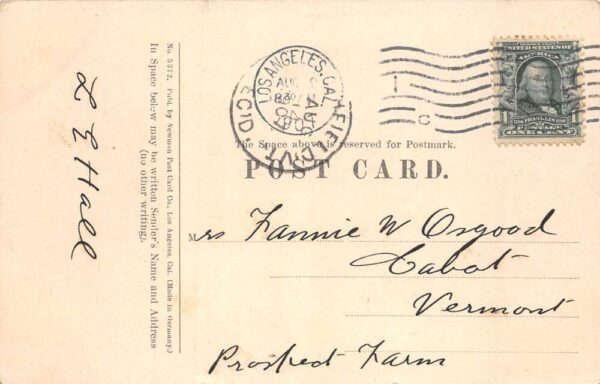 No. 5372, Publ. by Newman Post Card Co., Los Angeles, Cal. (Made in Germany.)
In Space below may be written Sender's Name and Address
(no other writing).
L E Hall
LOS ANGELES, CAL.
AUG
8 30
REC'D.
VT.
UNITED STATES OF
AMERICA
FRANKLIN
POSTAGE
1 ONE CENT 1
The Space above is reserved for Postmark.
POST CARD.
Mrs Fannie W Osgood
Cabot
Vermont
Prospect Farm